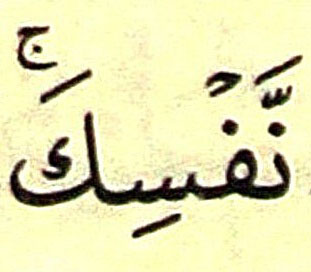 نَّفْسِكَ ۚ